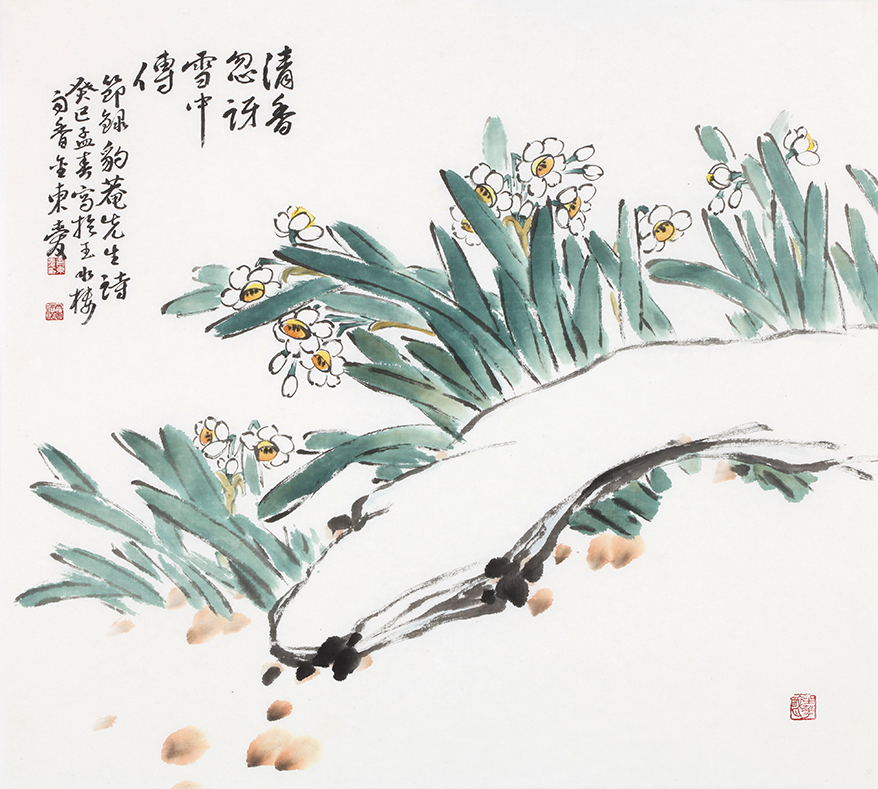 清香
忽訝
雪中
傳
節錄豹菴先生詩
癸巳孟春寫於玉水樓
雨香金東愛